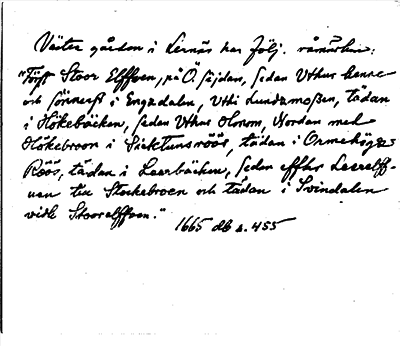 Väster gården i Lernäs har följ. råmärken:
"Först Stoor Elffven, på Ö. sijdan, sedan Uthur henne
och sönnerst i Engadalen, Uthi Lundamoßen, tädan
i Hökebäcken, sedan Uthur Honom, Nordan med
Hökebroon i Säcktunsröös, tädan i Ormehögz
Röös, tädan i Leerbäcken, sedan effter Leerelff-
uen till Stockebroen och tädan i Svindalen
vidh Stoorelffven."
1665 db s. 455